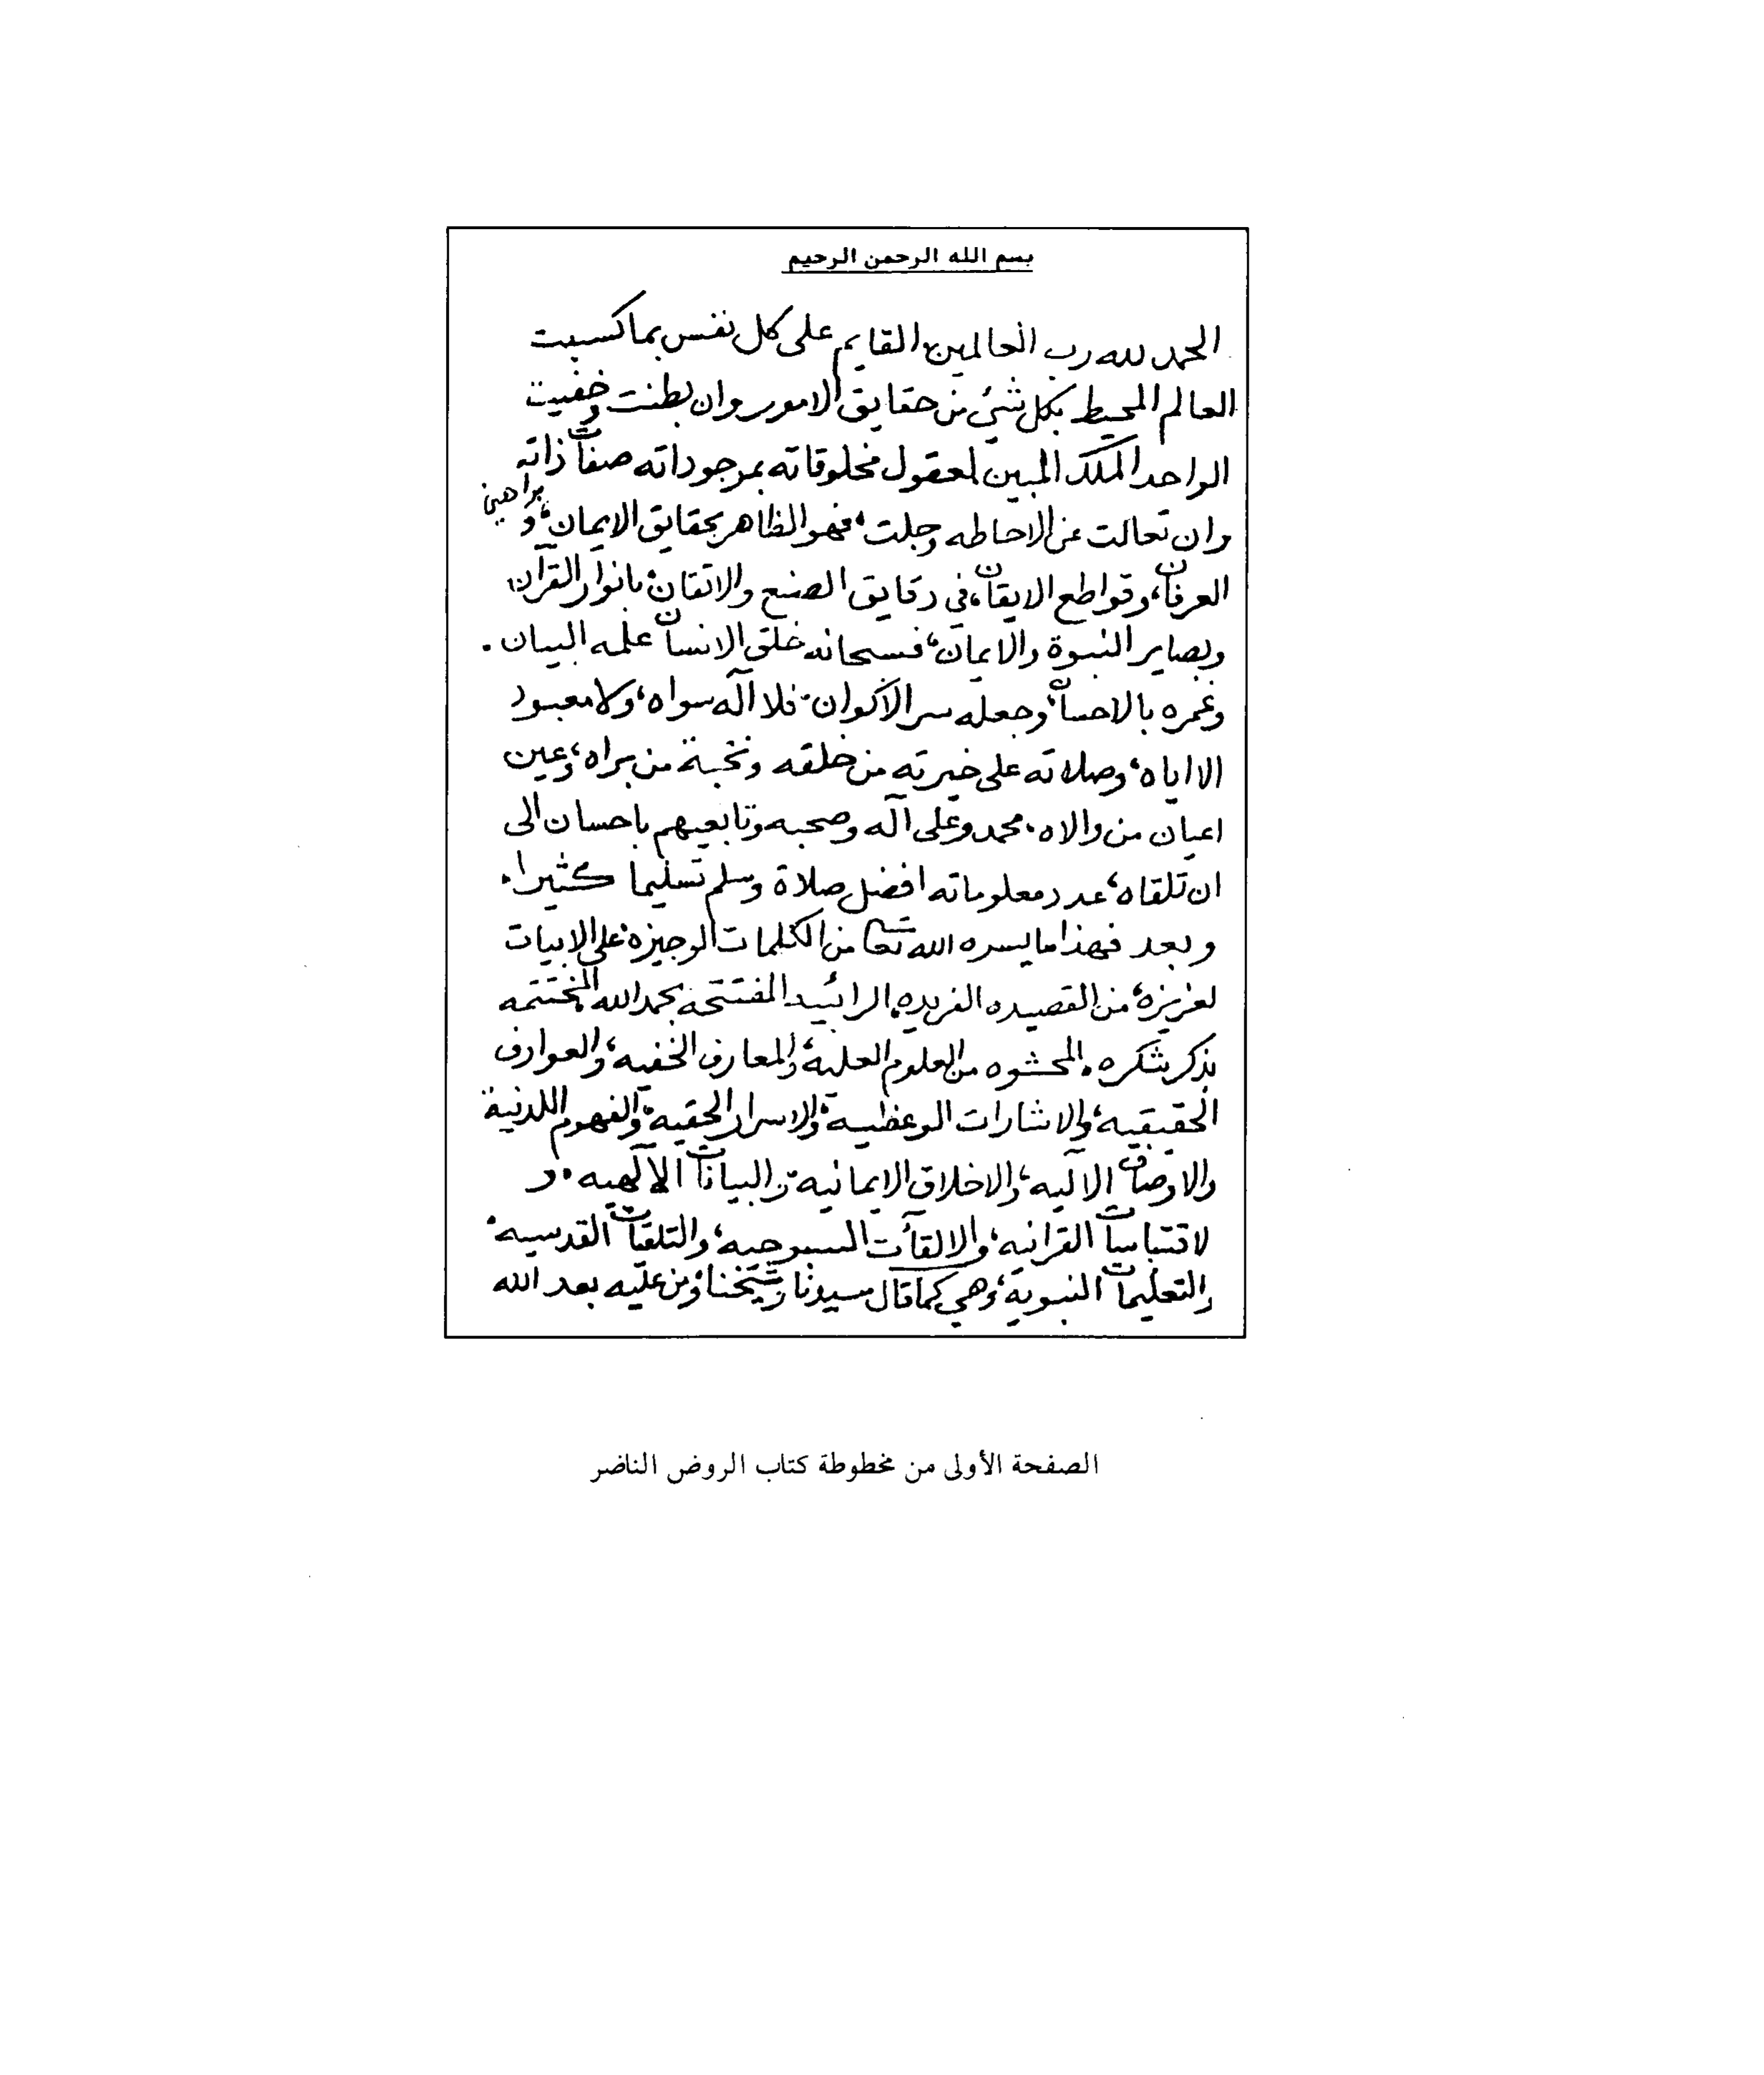 بسم الله الرحمن الرحيم
الحمد لله رب العالمين القايم على كل نفس بما كسبت
العالم المحيط بكل شئ من حقايق الامور وان بطنت وخفيت
الواحد الملك المبين لعقول مخلوقاته بموجوداته صفات ذاته
وان تعالت عن الاحاطه وجلت، فهو الظاهر بحقايق الايمان، وبراهين
العرفان، وقواطع الايقان، في دقايق الصنع والاتقان، بانوار القرآن
وبصاير النبوة والايمان، فسبحانه خلق الانسان علمه البيان.
وغمره بالاحسان، وجعله سر الاكوان. فلا آله سواه، ولا معبود
الا اياه، وصلاته على خيرته من خلقه ونخبة من براه، وعين
اعيان من والاه. محمد وعلى آله وصحبه وتابعيهم باحسان الى
ان تلقاه، عدد معلوماته افضل صلاة وسلم تسليما كثيرا.
وبعد فهذا ما يسره الله تعا من الكلمات الوجيزه، على الابيات
لعزيزة، من القصيده الفريده. الرائيه المفتتحه بحمد الله المختتمه
بذكر شكره. المحشوه من العلوم العلية، والمعارف الخفيه، والعوارف
الحقيقيه، والاشارات الوعظيه، والاسرار الحقيه، والفهوم اللدنية
والاوصاف الآليه، والاخلاق الايمانيه. والبيانات الآلهيه. و
لاقتباسات القرانيه، والالقأت السبوحيه، والتلقيات القدسيه.
والتعليمات النبوية، وهي كما قال سيدنا وشيخنا، ومن عليه بعد الله
الصفحة الأولى من مخطوطة كتاب الروض الناضر